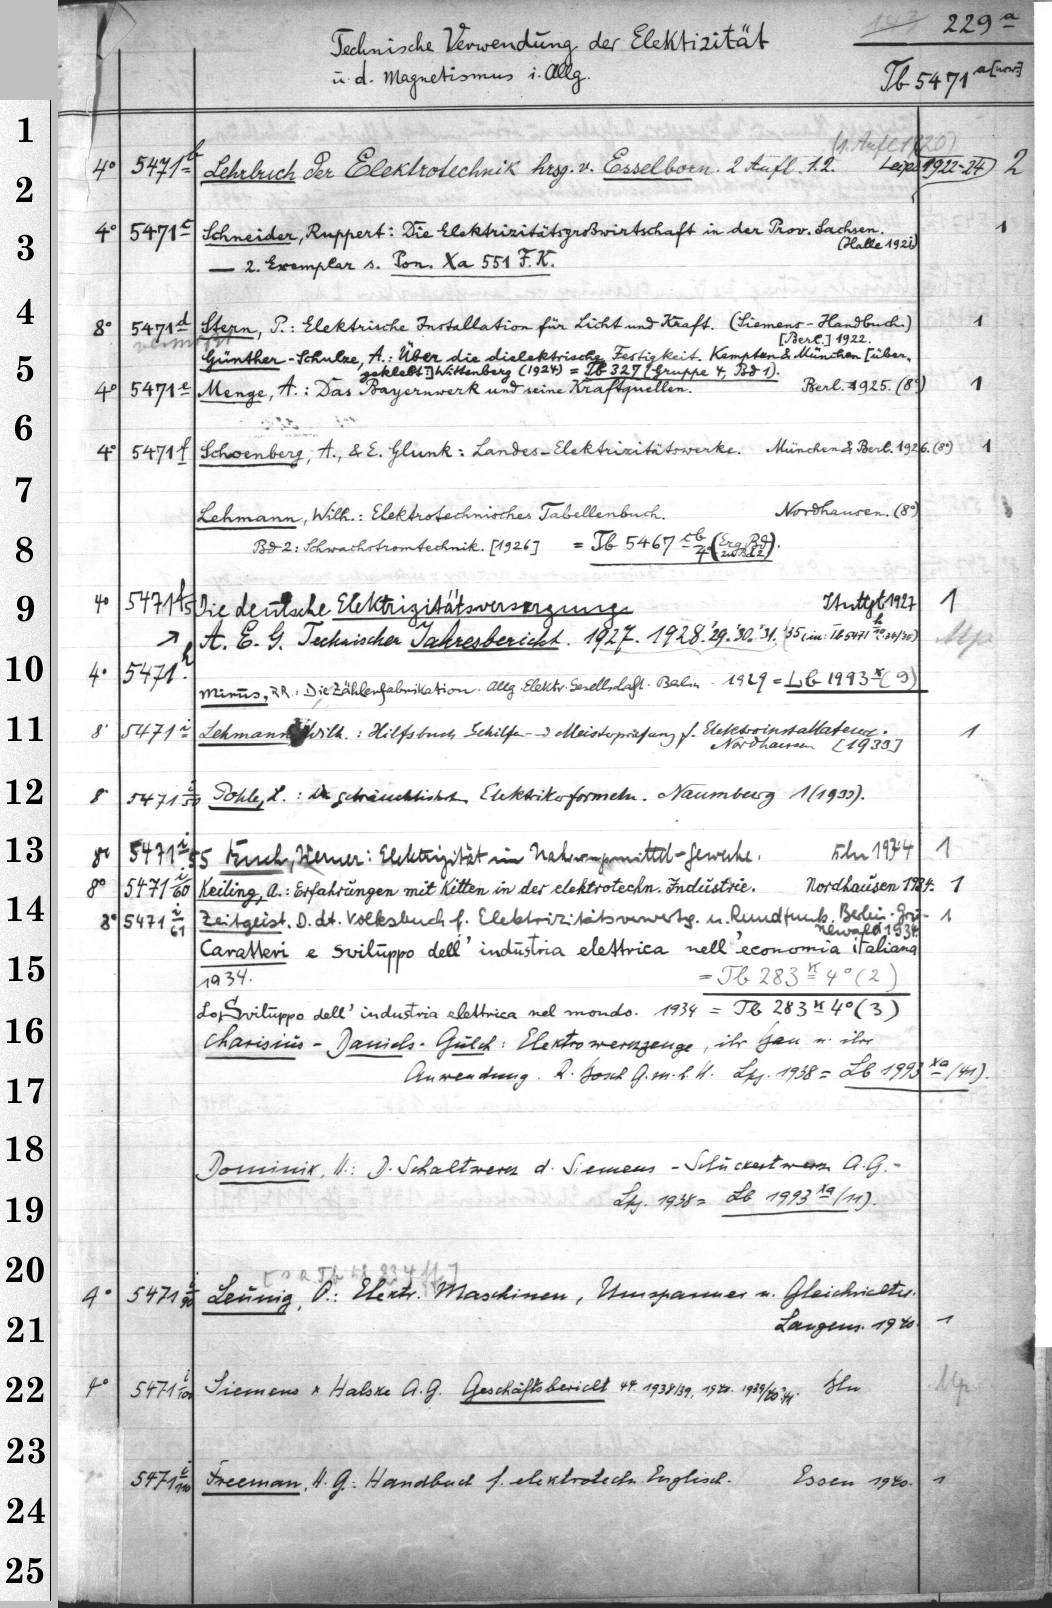 143 229 a
Technische Verwendung der Elektizität
u. d. Magnetismus i. Allg.
Tb 5471 a[nov.]
(1. Aufl 1920)
1
4° 5471 b Lehrbuch der Elektrotechnik hrsg. v. Esselborn. 2 Aufl. 1.2. Leipz. 1922-24 2
2
4° 5471 c Schneider, Ruppert: Die Elektrizitätsgroßwirtschaft in der Prov. Sachsen. 1
3
(Halle 1921)
— 2. Exemplar s. Pon. Xa 551 F.K.
4
8° 5471 d Stern, P.: Elektrische Installation für Licht und Kraft. (Siemens-Handbuch.) 1
[Berl.] 1922.
vermißt
Günther-Schulze, A.: Über die dielektrische Festigkeit. Kempten & München [über-
5
geklebt:] Wittenberg (1924) = Tb 3279 Gruppe 4, Bd 1).
4° 5471 e Menge, A.: Das Bayernwerk und seine Kraftquellen. Berl. 1925. (8°) 1
6
4° 5471 f Schoenberg, A., & E. Glunk: Landes-Elektrizitätswerke. München & Berl. 1926. (8°) 1
7
Lehmann, Wilh.: Elektrotechnisches Tabellenbuch. Nordhausen. (8°)
8
Bd 2: Schwachstromtechnik. [1926] = Tb 5467 cb/4 (Erg. Bd zu Bd 2).
9
4° 5471 f/5 Die deutsche Elektrizitätsversorgung Stuttgt 1927 1
A. E. G. Technischer Jahresbericht. 1927. 1928. '29. '30. '31. (35 in: Tb 5471
10
4° 5471 h
Minus, RR.: Die Zählerfabrikation. Allg. Elektr. Gesellschaft. Berlin 1929 = Lb 1993 x (9)
11
8° 5471 i Lehmann, Wilh.: Hilfsbuch Gehilfen- u Meisterprüfung f. Elektroinstallateure. 1
Nordhausen [1933]
12
8° 5471 i/50 Pohle, L.: Die gebräuchlichst. Elektrikerformeln. Naumberg 1 (1933).
13
8° 5471 i/55 Werner: Elektrizität im Nahrungsmittel-Gewerbe. 1934 1
8° 5471 i/60 Keiling, A.: Erfahrungen mit Kitten in der elektrotechn. Industrie. Nordhausen 1934. 1
14
8° 5471 i/61 Zeitgeist. D. dt. Volksbuch f. Elektrizitätsverwertg. u. Rundfunk. Berlin-Gru- 1
newald 1934.
Caratteri e sviluppo dell' industria elettrica nell'economia italiana
15
1934. = Tb 283 κ 4° (2)
Lo Sviluppo dell' industria elettrica nel mondo. 1934 = Tb 283 κ 4° (3)
16
Charisius - Daniels - Gülch: Elektrowerkzeuge, ihr Bau u. ihre
17
Anwendung. R. Bosch G.m.b.H. Lpz. 1938 = Lb 1993 xa (41).
18
Dominik, H.: D. Schaltwerk d. Siemens-Schuckertwerke A.G.-
19
Lpz. 1938 = Lb 1993 xa (11).
20
4° 5471 i/90 Leunig, O.: Elektr. Maschinen, Umspanner u. Gleichrichter.
21
Langens. 1940. 1
22
4° 5471 i/100 Siemens & Halske A.G. Geschäftsbericht 44 1938/39, 1940. 1939/40 Bln
23
5471 i/110 Freeman, H. G.: Handbuch f. elektrotechn. Englisch. Essen 1940. 1
24
25